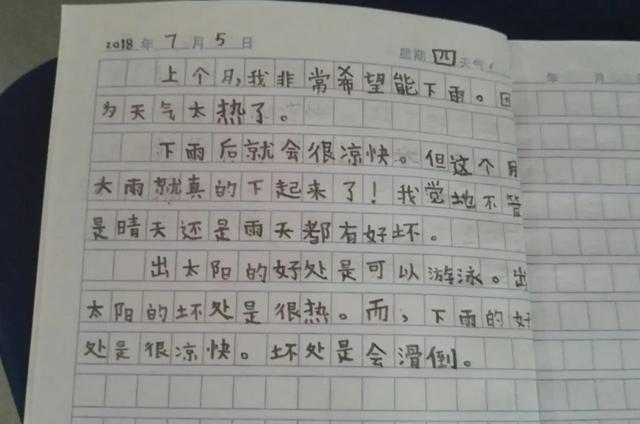 2018年7月5日 星期四天气:
上个月,我非常希望能下雨。因
为天气太热了。
下雨后就会很凉快。但这个月
大雨就真的下起来了!我觉地不管
是晴天还是雨天都有好坏。
出太阳的好处是可以游泳。出
太阳的坏处是很热。而,下雨的好
处是很凉快。坏处是会滑倒。
年 月